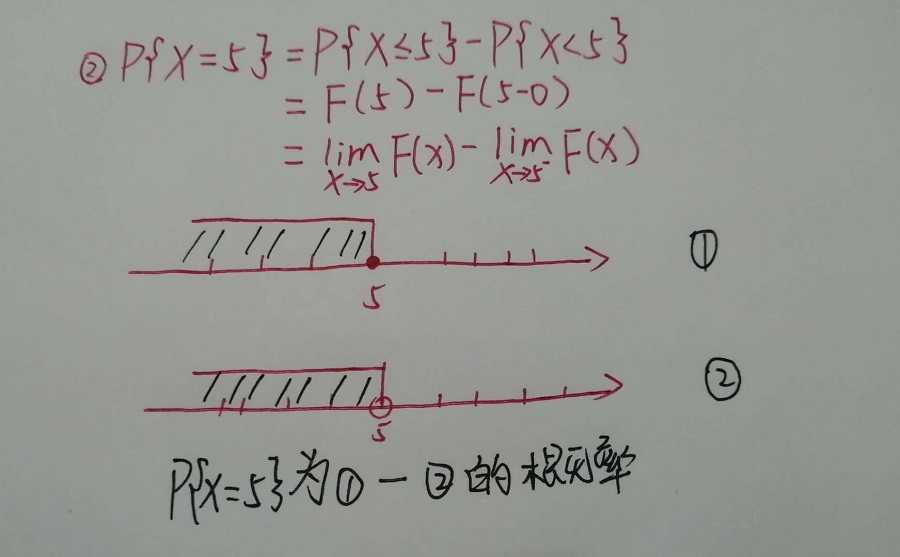 ② P{X=5}=P{X≤5}-P{X<5}
= F(5)-F(5-0)
= lim F(x)- lim F(x)
X→5 X→5⁻
①
5
②
5
P{X=5}为①一②的概率